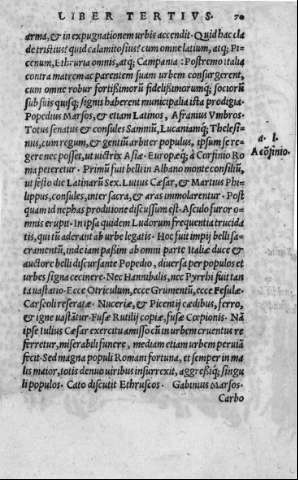 LIBER TERTIVS. 70
arma, & in expugnationem urbis accendit. Quid hac cla
de tristius? quid calamitosius? cum omne latium, atq; Pi
cenum, Ethruria omnis, atq; Campania: Postremo italia
contra matrem ac parentem suam urbem consurgerent,
cum omne robur fortissimorū fidelissimorumq; sociorū
sub suis quisq; signis haberent municipalia ista prodigia.
Popedius Marsos, & etiam Latinos, Afranius Vmbros.
Totus senatus & consules Samniū, Lucaniamq; Thelesi-
nus, cum regum, & gentiū arbiter populus, ipsum se re-
gere nec posset, ut uictrix Asiæ Europæq; à Corfinio Ro
ma peteretur. Primū fuit belli in Albano monte consiliū,
ut festo die Latinarū Sex. Lutius Cæsar, & Martius Phi-
lippus, consules, inter sacra, & aras immolarentur. Post
quam id nephas proditione discussum est. Asculo furor o-
mnis erupit. In ipsa quidem Ludorum frequentia trucida
tis, qui tū aderant ab urbe legatis. Hoc fuit impij belli sa-
cramentū, inde iam passim ab omni parte Italiæ duce &
auctore belli discursante Popedio, diuersa per populos et
urbes signa cecinere. Nec Hannibalis, nec Pyrrhi fuit tan
ta uastatio. Ecce Otriculum, ecce Grumentū, ecce Fesulæ.
Carseoli reseratæ. Nuceriæ, & Picentij cædibus, ferro,
& igne uastātur. Fusæ Rutilij copiæ, fusæ Cepionis. Nā
ipse Iulius Cæsar exercitu amisso cū in urbem cruentus re
ferretur, miserabili funere, mediam etiam urbem peruiā
fecit. Sed magna populi Romani fortuna, et semper in ma
lis maior, totis denuo uiribus insurrexit, aggressiq; singu
li populos. Cato discutit Ethruscos. Gabinius Marsos.
Carbo
a. l.